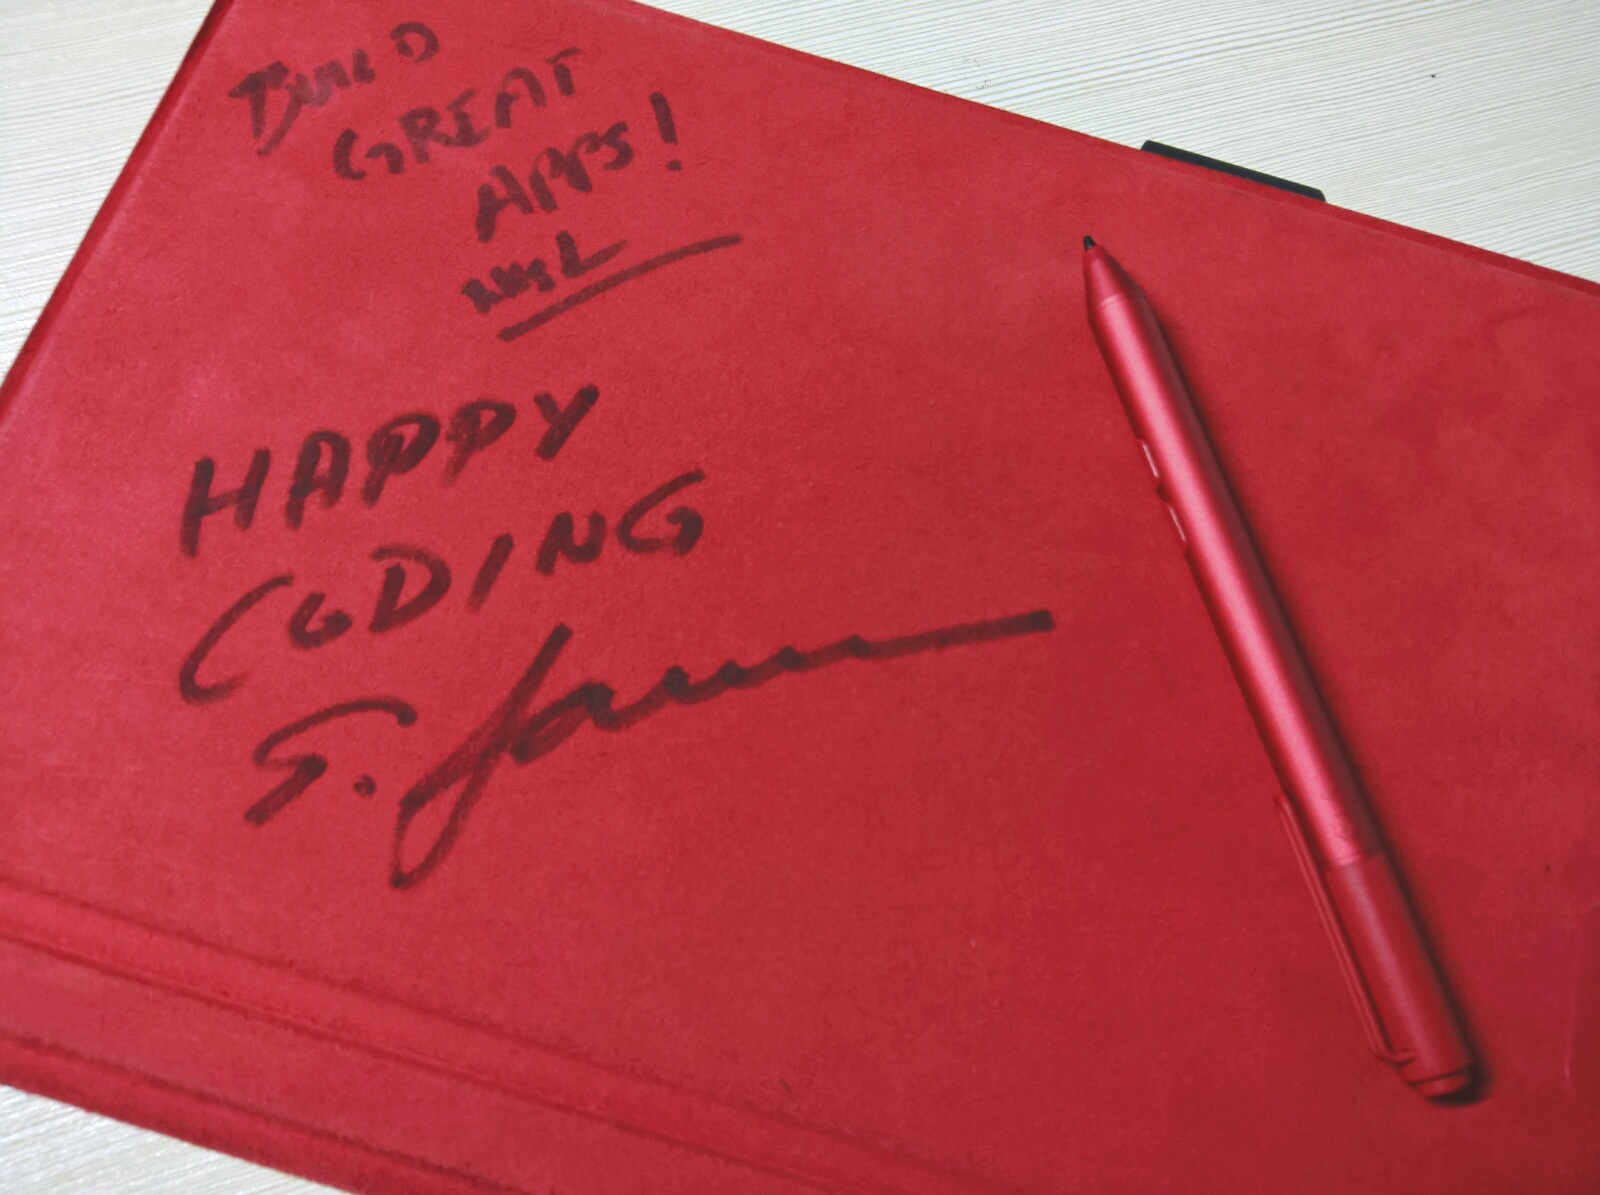 BUILD
GREAT
APPS!
HAPPY
CODING
G.